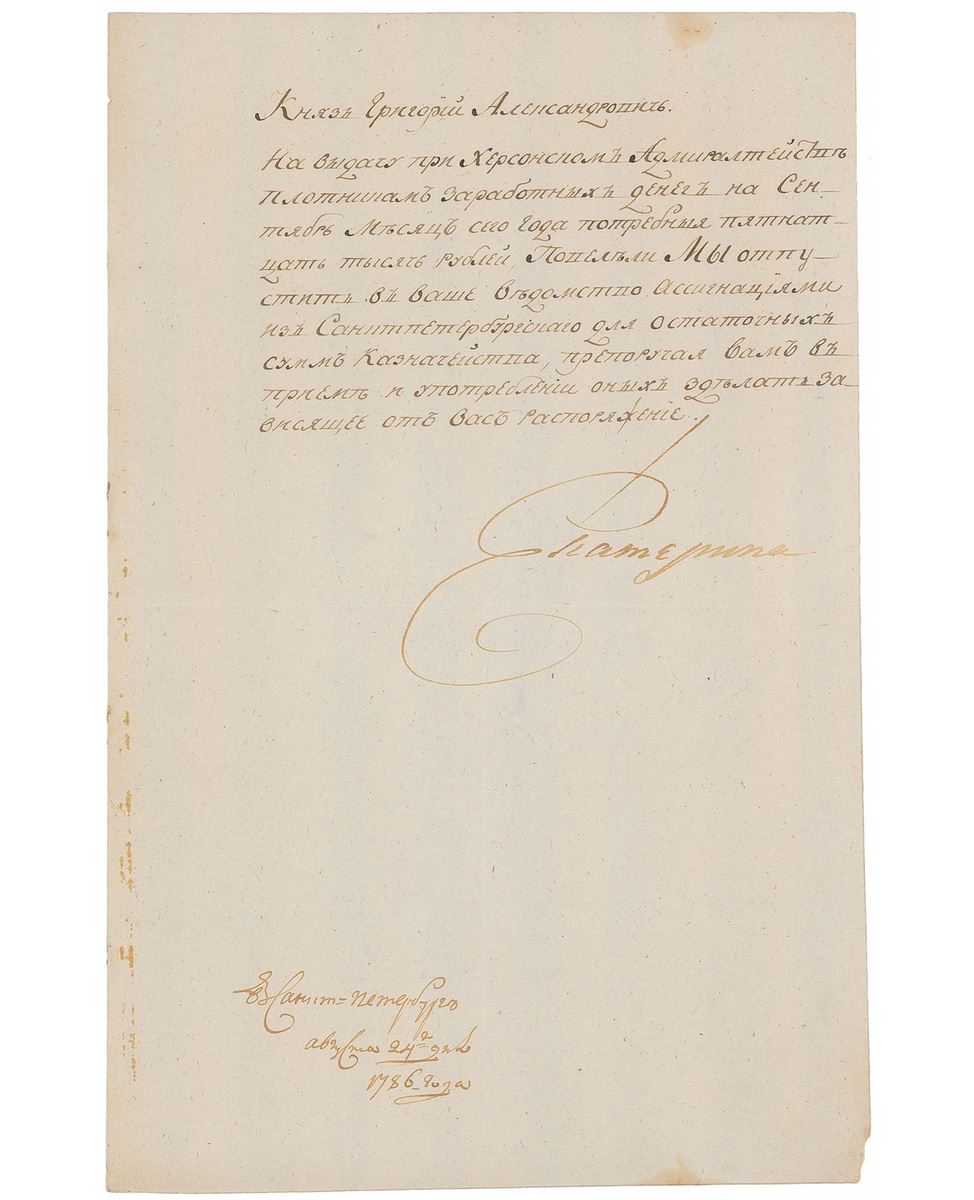 Князь Григорій Александровичь.
На выдачу при Херсонскомъ Адмиралтействѣ
плотникамъ заработныхъ денегъ на Сен-
тябрь Мѣсяцъ сего года потребныя пятнат-
цать тысячь рублей, Повелѣли Мы отпу-
стить въ ваше вѣдомство Ассигнаціями
изъ Санктпетербургскаго для остаточныхъ
суммъ Казначейства, препоручая вамъ въ
приемѣ и употребленіи оныхъ здѣлать за-
висящее отъ васъ распоряженіе.
Екатерина
въ Санкт=Петербургѣ
августа 24го дня
1786_года